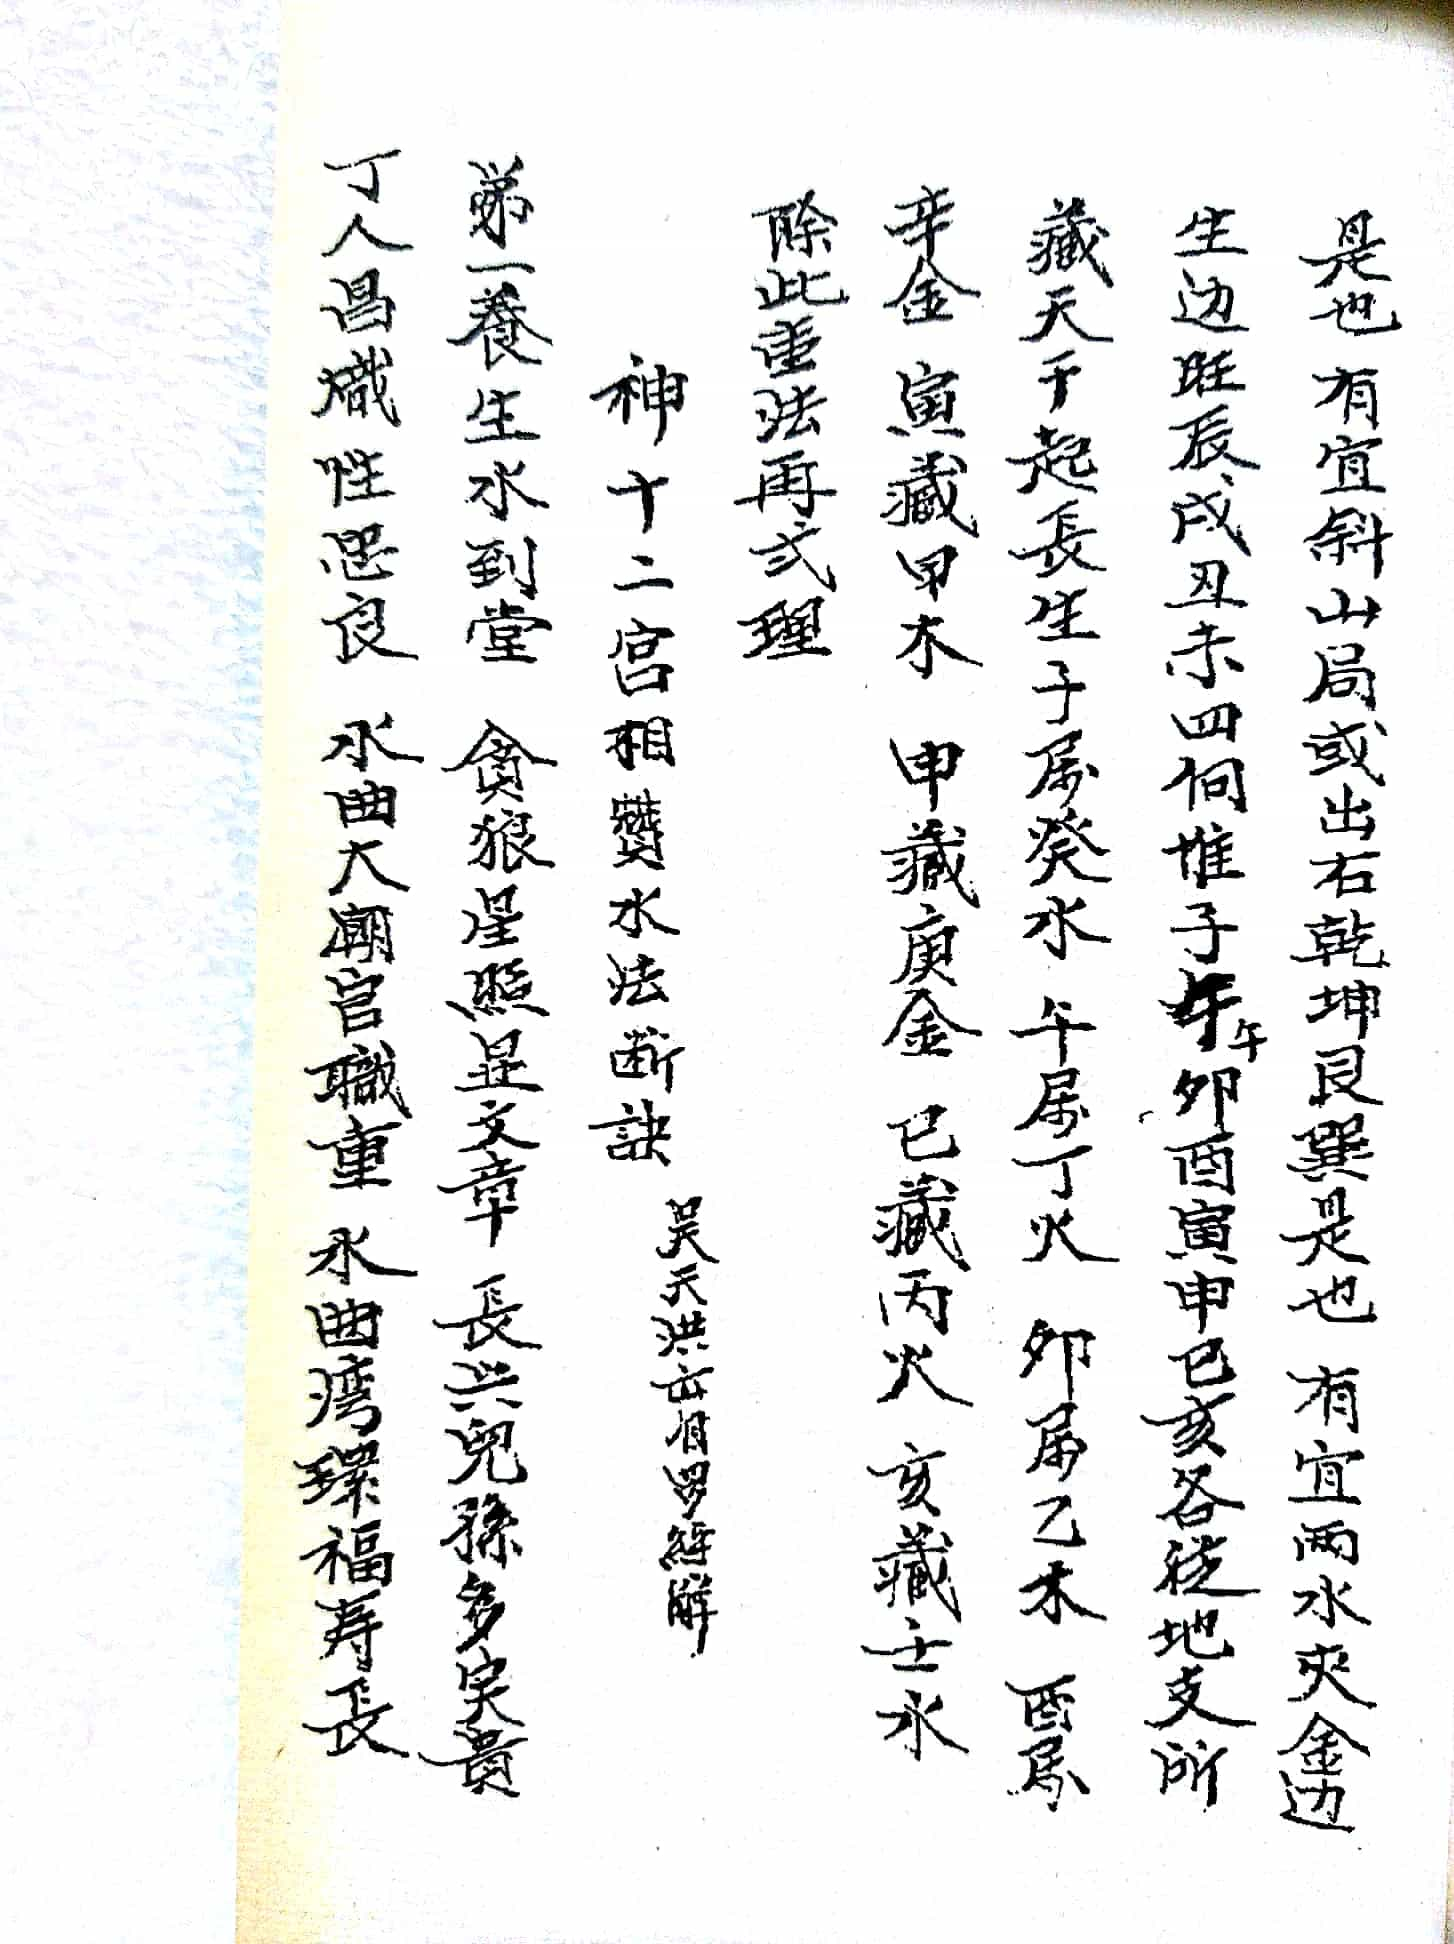 是也 有宜斜山局或出右乾坤艮巽是也 有宜两水夾金边
生边旺辰戌丑未四何惟子午卯酉寅申巳亥各從地支所
藏天干起長生子属癸水 午属丁火 卯属乙木 酉属
辛金 寅藏甲木 申藏庚金 巳藏丙火 亥藏壬水
除此重法再式理
神十二宮相贊水法断訣
吴天洪云有罗經解
弟一養生水到堂 貪狼星照显文章 長兴兒孫多実貴
丁人昌熾性思良 水曲大廟官職重 水曲湾環福寿長